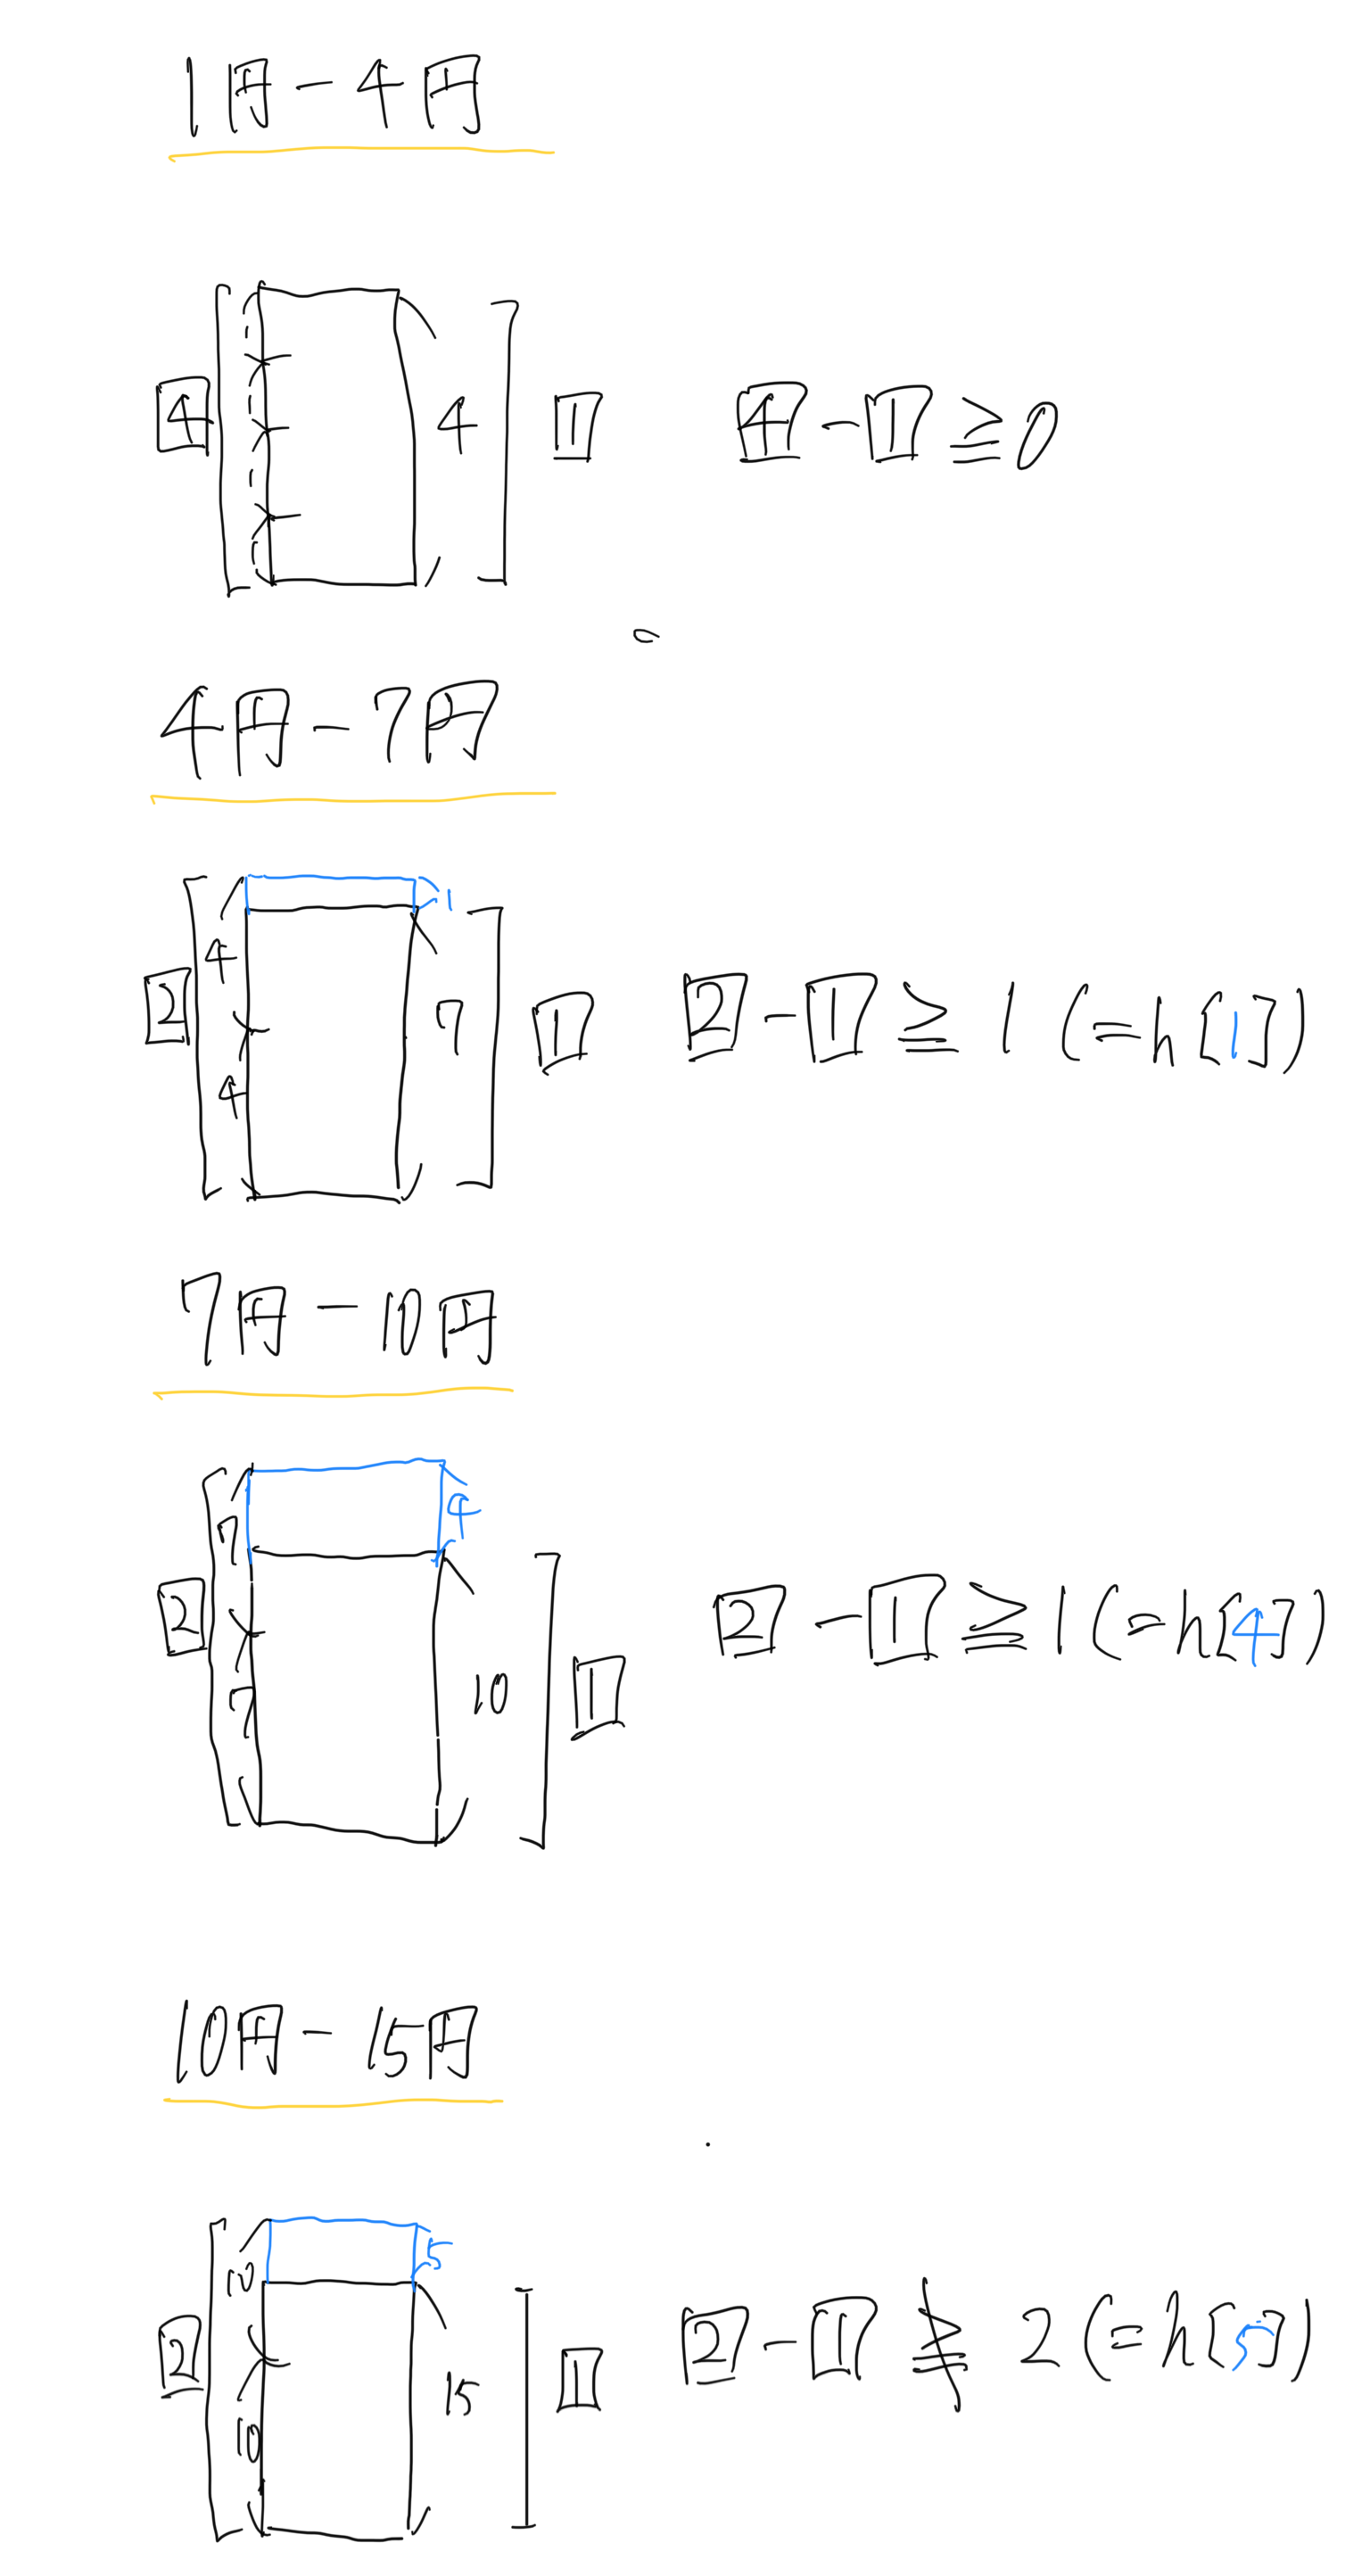 1円-4円
4 4 1 4-1≧0
4円-7円
1
4
2 7 1 2-1≧1(=h[1])
4
7円-10円
4
7
2 10 1 2-1≧1(=h[4])
7
10円-15円
5
10
2 15 1 2-1≱2(=h[5])
10